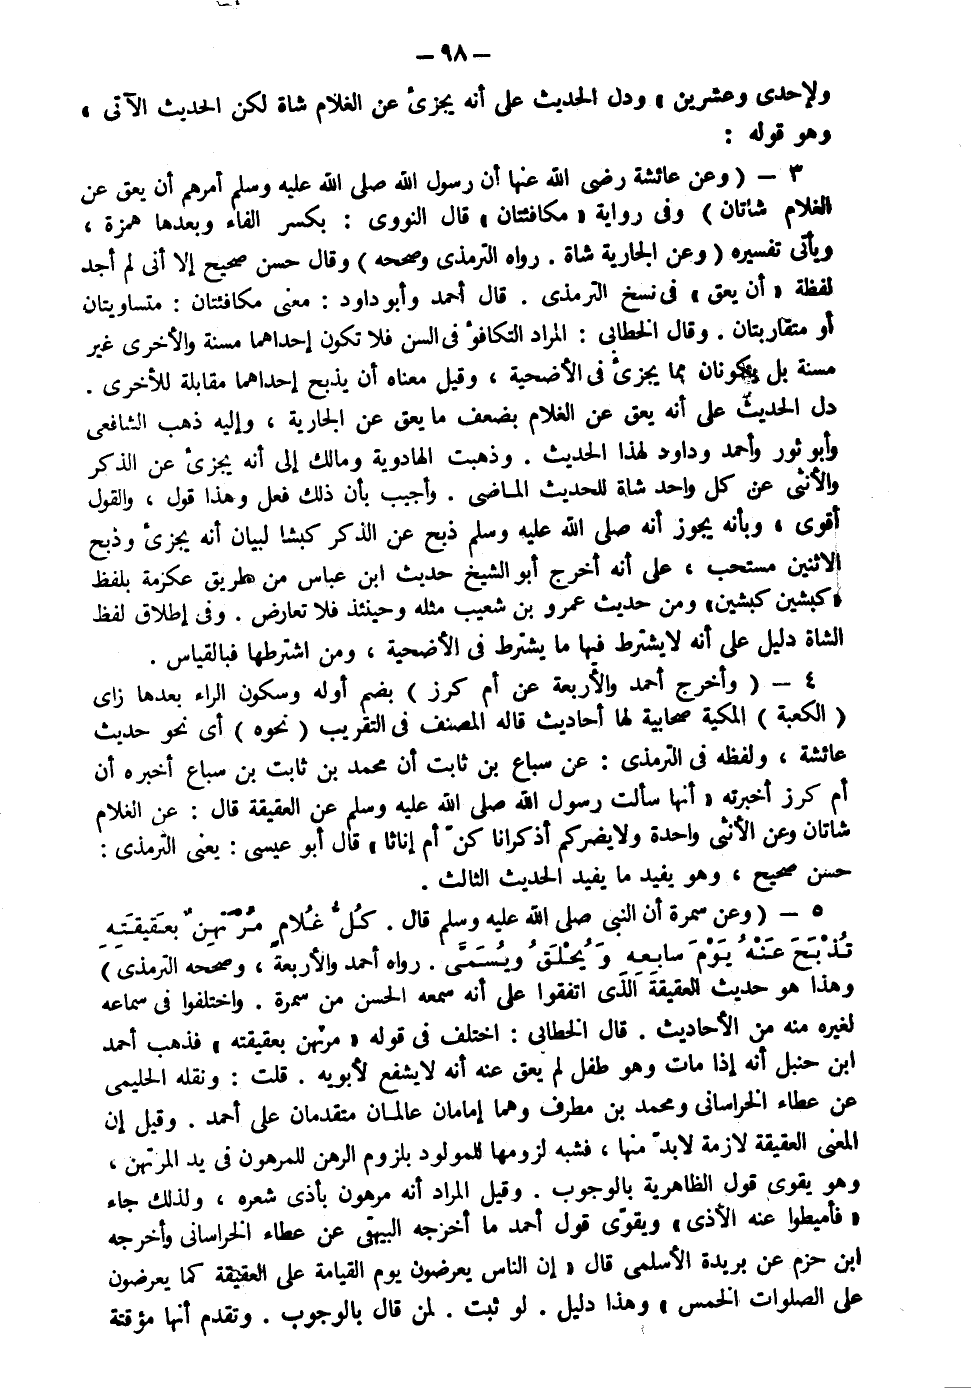 — ٩٨ —
ولإحدى وعشرين » ودل الحديث على أنه يجزئ عن الغلام شاة لكن الحديث الآتى ،
وهو قوله :
٣ — ( وعن عائشة رضى الله عنها أن رسول الله صلى الله عليه وسلم أمرهم أن يعق عن
الغلام شاتان ) وفى رواية « مكافئتان » قال النووى : بكسر الفاء وبعدها همزة ،
ويأتى تفسيره ( وعن الجارية شاة . رواه الترمذى وصححه ) وقال حسن صحيح إلا أنى لم أجد
لفظة « أن يعق » فى نسخ الترمذى . قال أحمد وأبو داود : معنى مكافئتان : متساويتان
أو متقاربتان . وقال الخطابى : المراد التكافؤ فى السن فلا تكون إحداهما مسنة والأخرى غير
مسنة بل يكونان مما يجزئ فى الأضحية ، وقيل معناه أن يذبح إحداهما مقابلة للأخرى .
دل الحديث على أنه يعق عن الغلام بضعف ما يعق عن الجارية ، وإليه ذهب الشافعى
وأبو ثور وأحمد وداود لهذا الحديث . وذهبت الهادوية ومالك إلى أنه يجزئ عن الذكر
والأنثى عن كل واحد شاة للحديث الماضى . وأجيب بأن ذلك فعل وهذا قول ، والقول
أقوى ، وبأنه يجوز أنه صلى الله عليه وسلم ذبح عن الذكر كبشا لبيان أنه يجزئ وذبح
الاثنين مستحب ، على أنه أخرج أبو الشيخ حديث ابن عباس من طريق عكرمة بلفظ
« كبشين كبشين» ومن حديث عمرو بن شعيب مثله وحينئذ فلا تعارض . وفى إطلاق لفظ
الشاة دليل على أنه لا يشترط فيها ما يشترط فى الأضحية ، ومن اشترطها فبالقياس .
٤ — ( وأخرج أحمد والأربعة عن أم كرز ) بضم أوله وسكون الراء بعدها زاى
( الكعبة ) المكية صحابية لها أحاديث قاله المصنف فى التقريب ( نحوه ) أى نحو حديث
عائشة ، ولفظه فى الترمذى : عن سباع بن ثابت أن محمد بن ثابت بن سباع أخبره أن
أم كرز أخبرته « أنها سألت رسول الله صلى الله عليه وسلم عن العقيقة قال : عن الغلام
شاتان وعن الأنثى واحدة ولا يضركم أذكرانا كنّ أم إناثا » قال أبو عيسى : يعنى الترمذى :
حسن صحيح ، وهو يفيد ما يفيد الحديث الثالث .
٥ — ( وعن سمرة أن النبى صلى الله عليه وسلم قال . كُلُّ غُلامٍ مُرْتَهِنٌ بعَقيقَتِهِ
تُذْبَحَ عَنْهُ يَوْمَ سابِعِهِ وَيُحْلَقُ ويُسَمَّى . رواه أحمد والأربعة ، وصححه الترمذى )
وهذا هو حديث العقيقة الذى اتفقوا على أنه سمعه الحسن من سمرة . واختلفوا فى سماعه
لغيره منه من الأحاديث . قال الخطابى : اختلف فى قوله « مرتهن بعقيقته » فذهب أحمد
ابن حنبل أنه إذا مات وهو طفل لم يعق عنه أنه لا يشفع لأبويه . قلت : ونقله الحليمى
عن عطاء الخراسانى ومحمد بن مطرف وهما إمامان عالمان متقدمان على أحمد . وقيل إن
المعنى العقيقة لازمة لابدّ منها ، فشبه لزومها للمولود بلزوم الرهن للمرهون فى يد المرتهن ،
وهو يقوى قول الظاهرية بالوجوب . وقيل المراد أنه مرهون بأذى شعره ، ولذلك جاء
« فأميطوا عنه الأذى » ويقوّى قول أحمد ما أخرجه البيهقى عن عطاء الخراسانى وأخرجه
ابن حزم عن بريدة الأسلمى قال « إن الناس يعرضون يوم القيامة على العقيقة كما يعرضون
على الصلوات الخمس » وهذا دليل . لو ثبت . لمن قال بالوجوب . وتقدم أنها مؤقتة